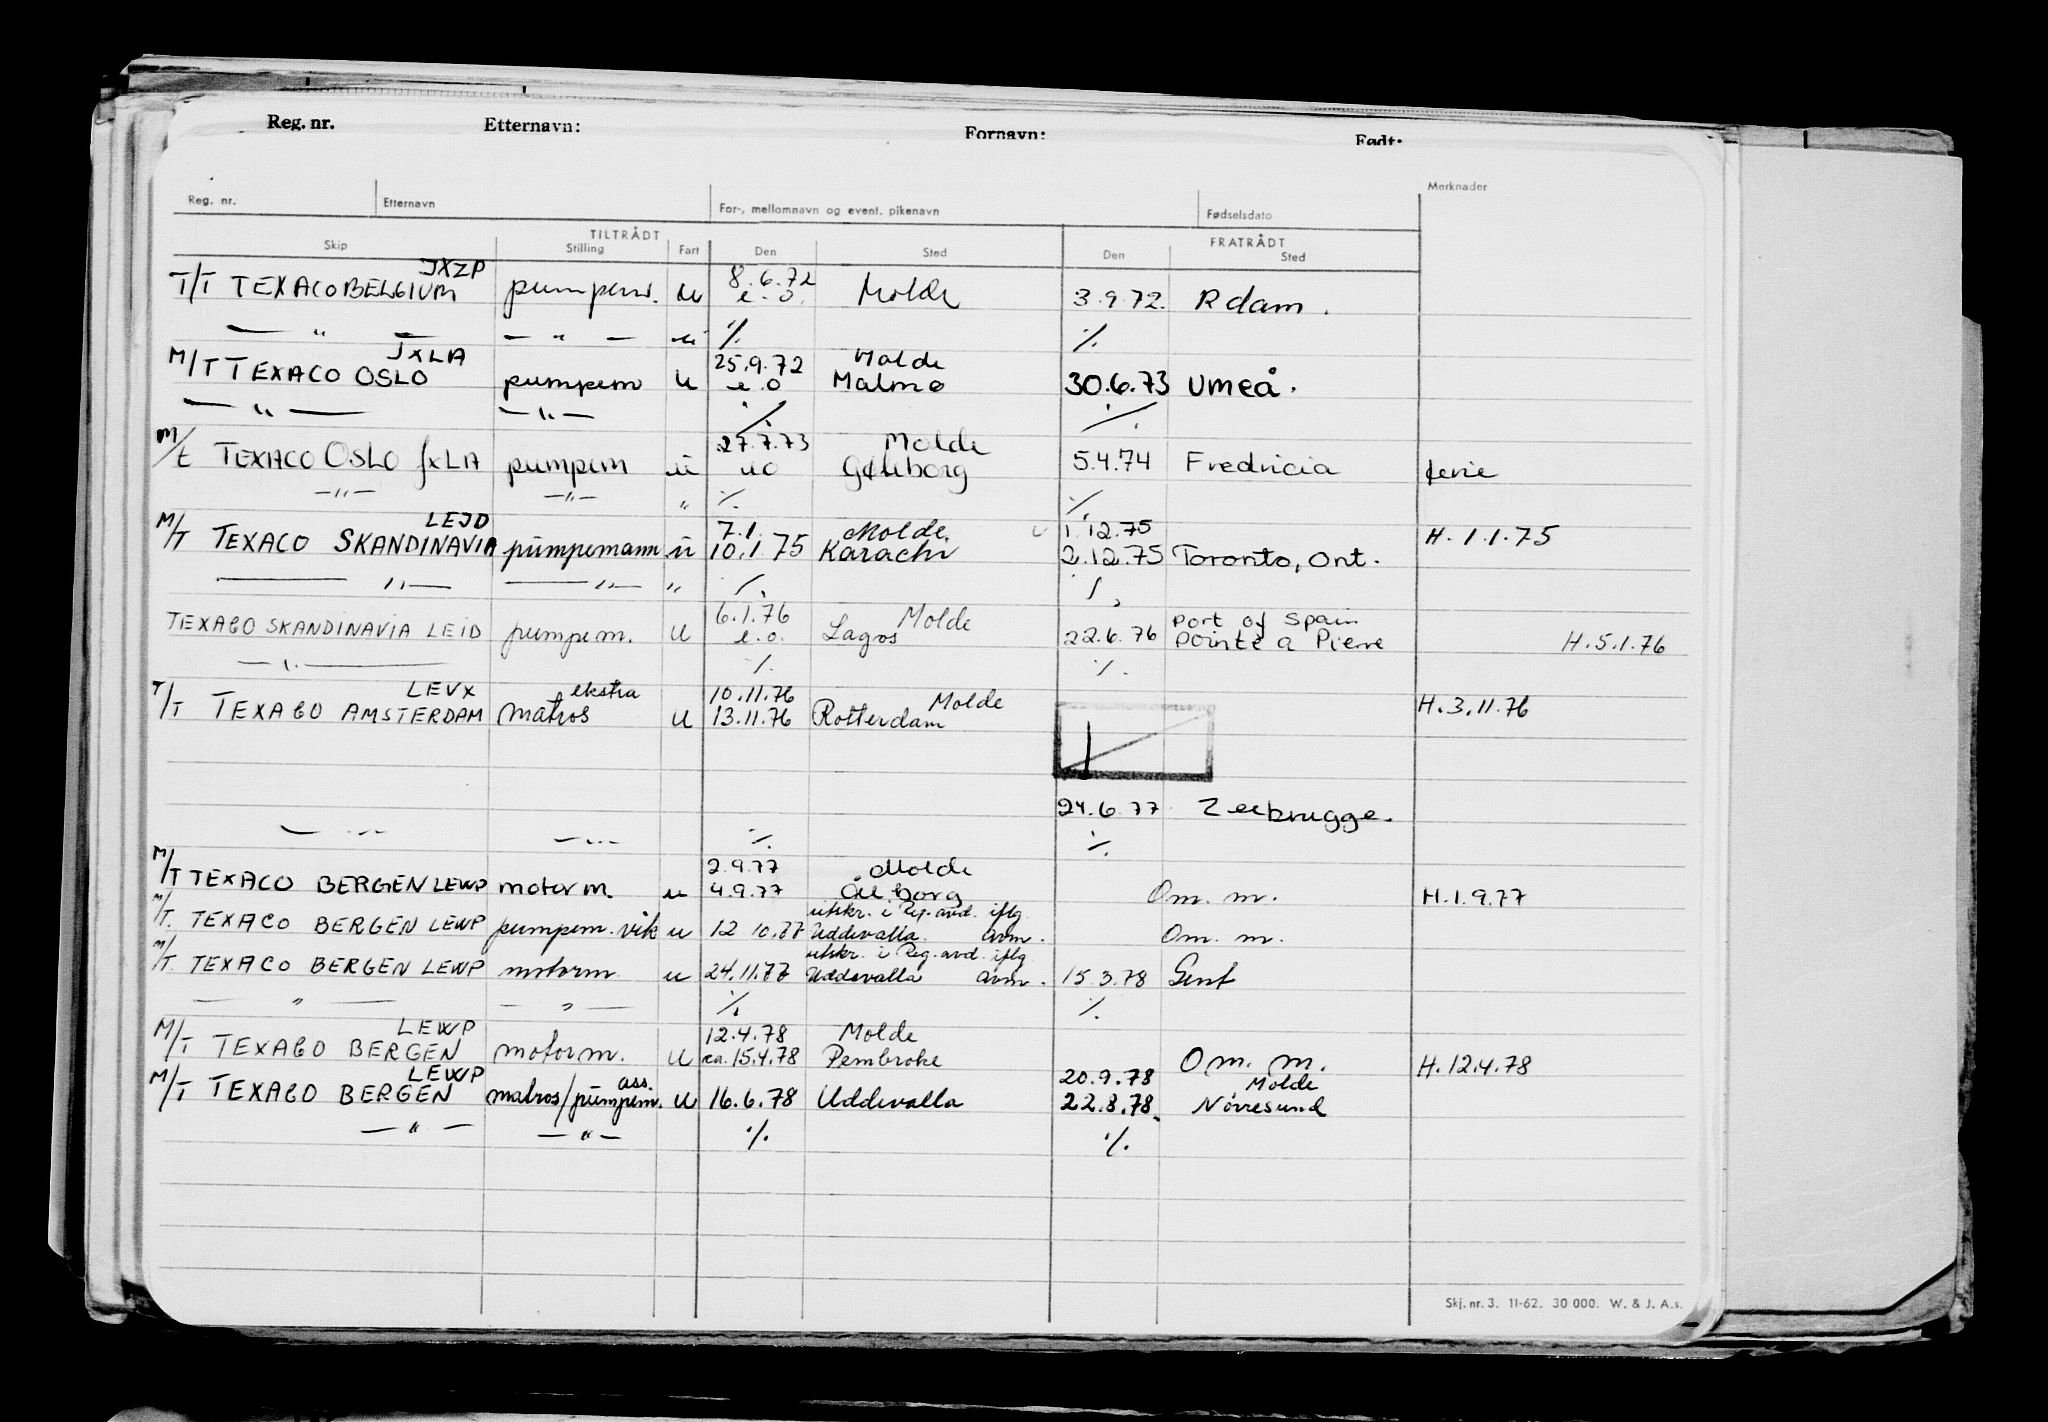 Reg. nr. Etternavn: Fornavn: Født:
Merknader
Reg. nr. Etternavn For-, mellomnavn og event. pikenavn Fødselsdato
TILTRÅDT FRATRÅDT
Skip Stilling Fart Den Sted Den Sted
JXZP 8.6.72
T/T TEXACO BELGIUM pumpem. u e.o. Molde 3.9.72. Rdam.
— " — " — u ·/. ·/.
JXLA 25.9.72 Molde
M/T TEXACO OSLO pumpem u e.o Malmø 30.6.73 Umeå.
— " — — " — ·/. ·/.
27.7.73 Molde
M/t TEXACO OSLO JXLA pumpem u uo Gøteborg 5.4.74 Fredricia ferie
— " — — " — " ·/. ·/.
LEJD 7.1. Molde. 1.12.75
M/T TEXACO SKANDINAVIA pumpemann u 10.1.75 Karachi 2.12.75 Toronto, Ont. H. 1.1.75
— " — — " — " ·/. ·/.
6.1.76 Molde Port of Spain
TEXACO SKANDINAVIA LEID pumpem. u e.o. Lagos 22.6.76 Pointe a Pierre H.5.1.76
— " — ·/. ·/.
LEVX ekstra 10.11.76 Molde
T/T TEXACO AMSTERDAM matros u 13.11.76 Rotterdam H.3.11.76
24.6.77 Zeebrugge.
— " — — " — ·/. ·/.
2.9.77 Molde
M/T TEXACO BERGEN LEWP motorm. u 4.9.77 Ålborg Om. m. H.1.9.77
utskr. i Reg.avd. iflg
M/T. TEXACO BERGEN LEWP pumpem. vik u 12.10.77 Uddevalla avm. Om. m.
utskr. i Reg.avd. iflg
M/T. TEXACO BERGEN LEWP motorm. u 24.11.77 Uddevalla avm. 15.3.78 Gent
— " — — " — ·/. ·/.
LEWP 12.4.78 Molde
M/T TEXACO BERGEN motorm. u ca. 15.4.78 Pembroke Om. m. H.12.4.78
LEWP ass. 20.9.78 Molde
M/T TEXACO BERGEN matros/pumpem. u 16.6.78 Uddevalla 22.8.78. Nörresund
— " — — " — ·/. ·/.
Skj. nr. 3. 11-62. 30 000. W. & J. A.s.